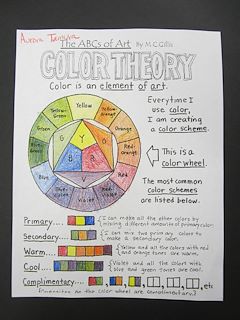 Aurora
The ABCs of Art By M.C. Gillis
COLOR THEORY
Color is an element of art.
Yellow
Yellow-Green
Yellow-Orange
Green
Orange
Blue-Green
Red-Orange
Blue
Red
Blue-Violet
Violet
Red-Violet
Y
G
O
B
R
V
Everytime I
use color,
I am creating
a color scheme.
This is a
color wheel.
The most common
color schemes
are listed below.
Primary
I can make all the other colors by
mixing different amounts of primary color
Secondary
I can mix two primary colors to
make a secondary color.
Warm
Yellow and all the colors with red
and orange tones are warm.
Cool
Violet and all the colors with
blue and green tones are cool.
Complimentary
etc
on the color wheel are complimentary.